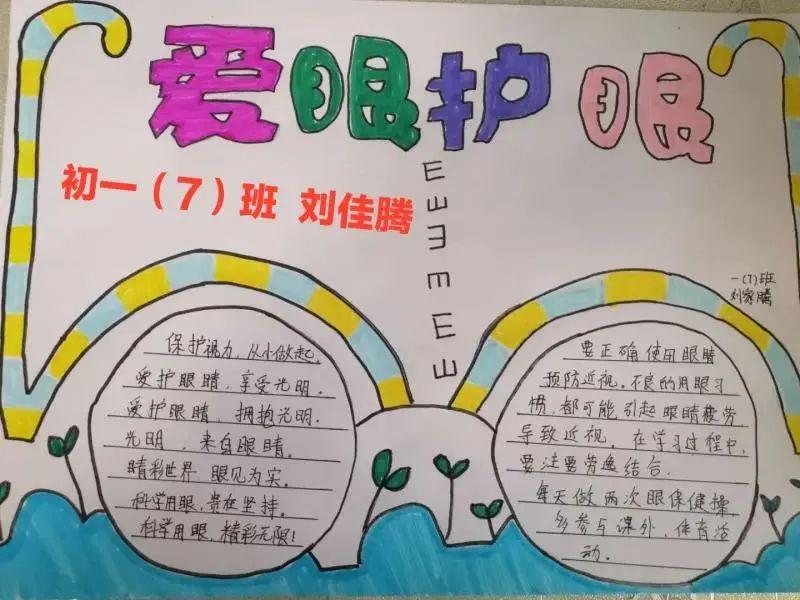 爱眼护眼
初一（7）班 刘佳腾
一(7)班
刘家腾
保护视力，从小做起。
爱护眼睛，享受光明。
爱护眼睛，拥抱光明。
光明，来自眼睛。
睛彩世界 眼见为实。
科学用眼，贵在坚持。
科学用眼，精彩无限！
要正确使用眼睛
预防近视。不良的用眼习
惯，都可能引起眼睛疲劳
导致近视。在学习过程中，
要注要劳逸结合。
每天做两次眼保健操，
多参与课外，体育活
动。